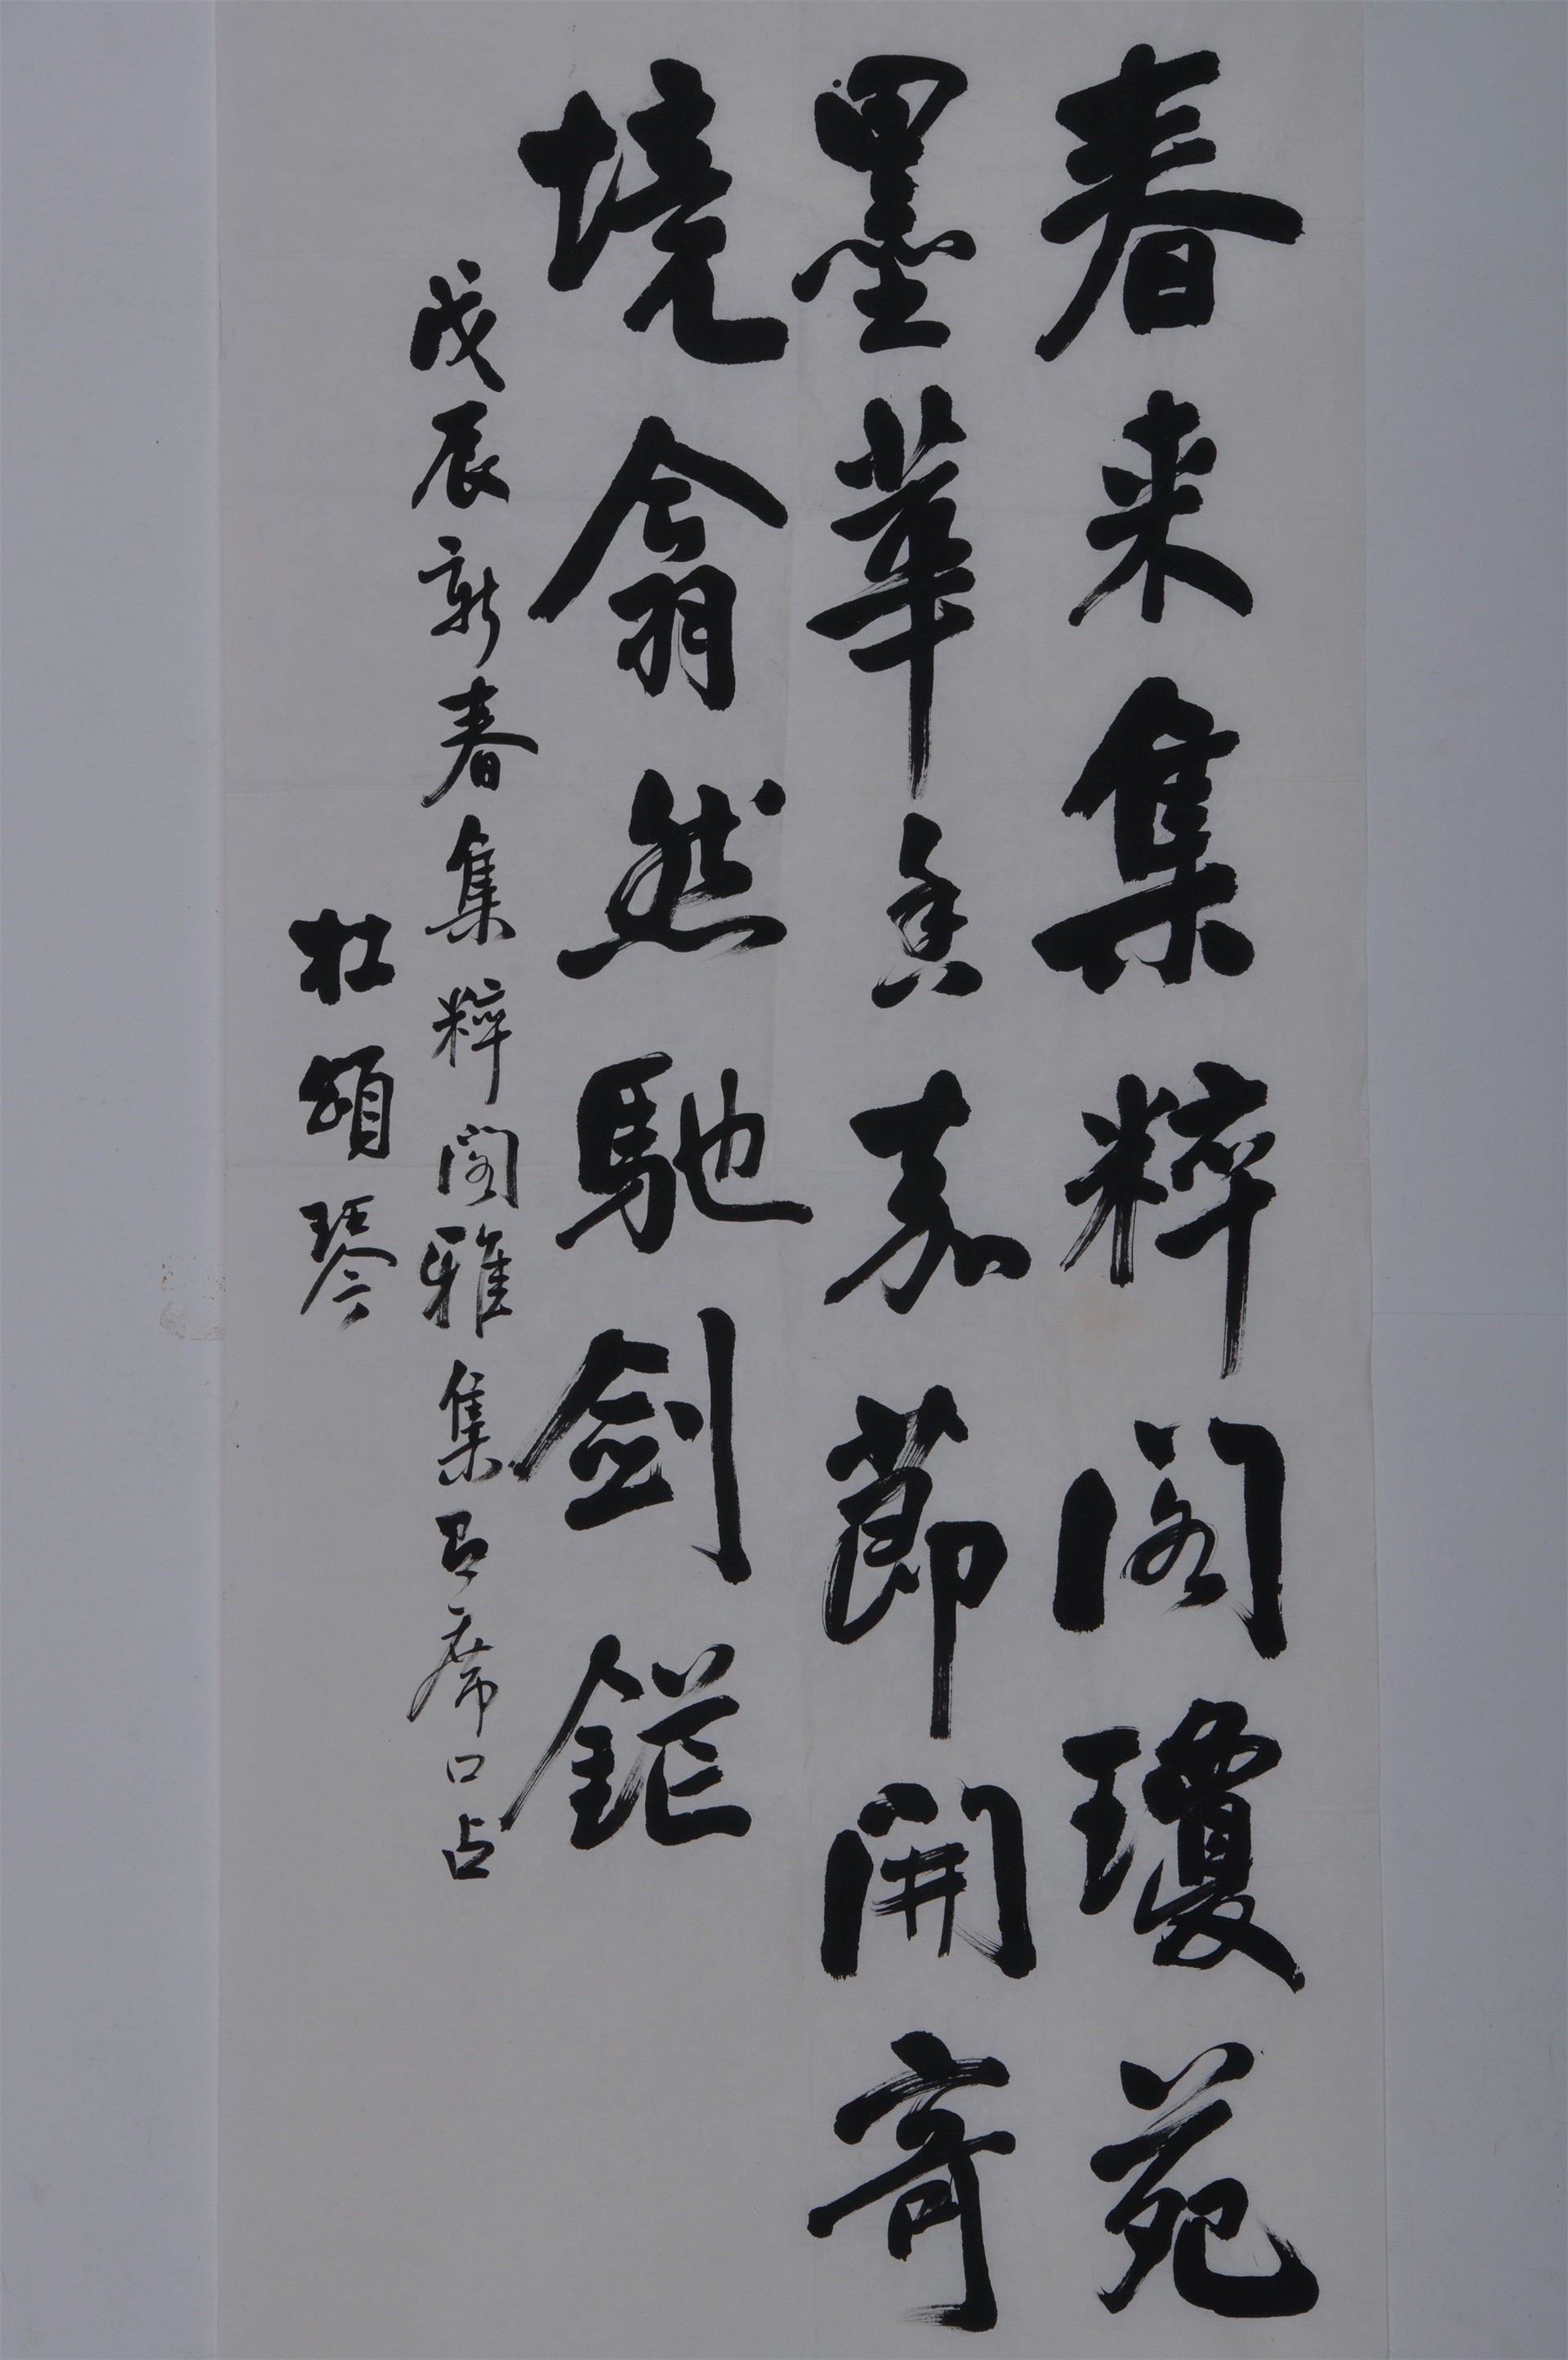 春来集粹閣瓊苑
墨華香嘉節開奇
境翕然馳劍鋩
戊辰新春集粹閣雅集即席口占
杜頌琴